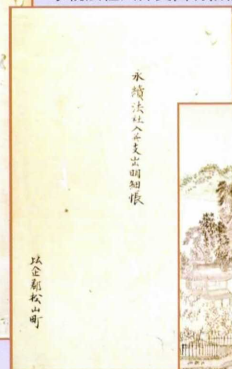 永續法仕入并支出明細帳
比企郡松山町